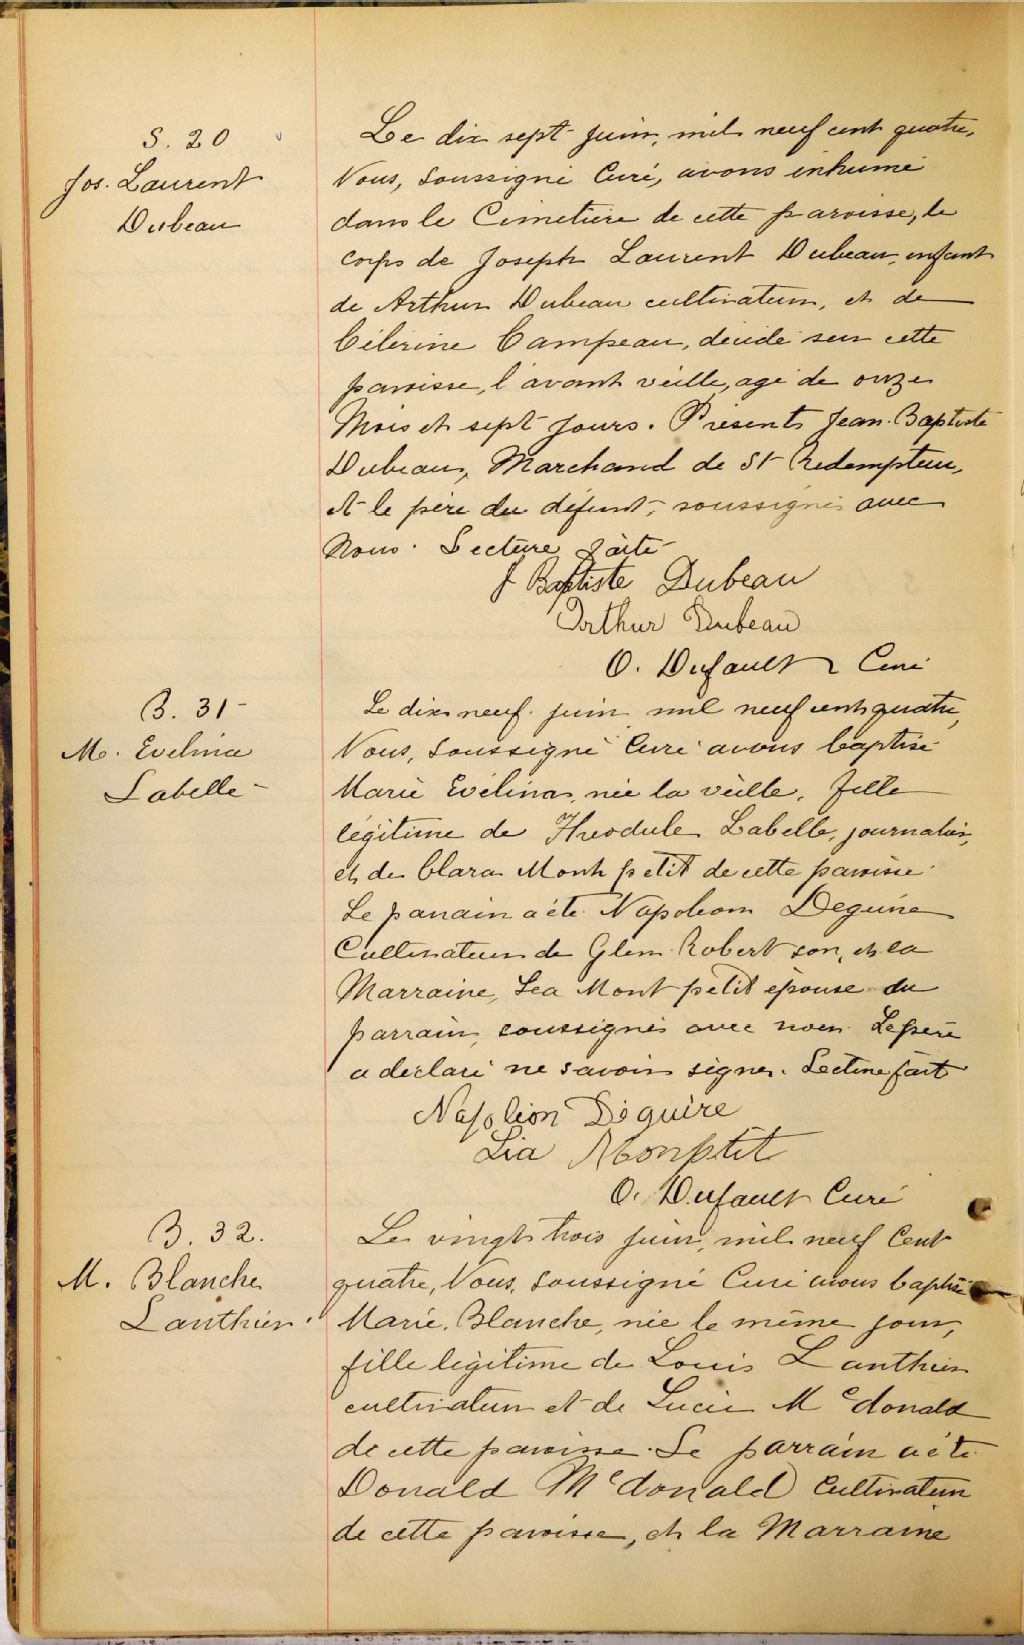 S. 20
Jos. Laurent
Dubeau
Le dix sept juin, mil neuf cent quatre,
Nous, soussigné Curé, avons inhumé
dans le Cimetière de cette paroisse, le
corps de Joseph Laurent Dubeau, enfant
de Arthur Dubeau cultivateur, et de
Célérine Campeau, décédé sur cette
paroisse, l'avant veille, agé de onze
Mois et sept jours. Présents Jean-Baptiste
Dubeau, Marchand de St Redempteur,
et le père du défunt, soussignés avec
Nous. Lecture faite
J Baptiste Dubeau
Arthur Dubeau
O. Dufault Curé
B. 31-
M. Evelina
Labelle-
Le dix neuf juin mil neuf cent quatre,
Nous, soussigné Curé avons baptisé
Marie Evélina, née la veille, fille
légitime de Theodule Labelle, journalier,
et de Clara Montpetit de cette paroisse
Le parrain a été Napoleon Deguire
Cultivateur de Glen Robertson, et la
Marraine, Lea Montpetit épouse du
parrain, soussignés avec nous. Le père
a declaré ne savoir signer. Lecture fait
Napolion Déguire
Lia Monptit
O. Dufault Curé
B. 32.
M. Blanche
Lanthier
Le vingt trois juin, mil neuf Cent
quatre, Nous, soussigné Curé avons baptisé
Marie, Blanche, née le même jour,
fille légitime de Louis Lanthier
cultivateur et de Lucie McDonald
de cette paroisse. Le parrain a été
Donald McDonald Cultivateur
de cette paroisse, et la Marraine